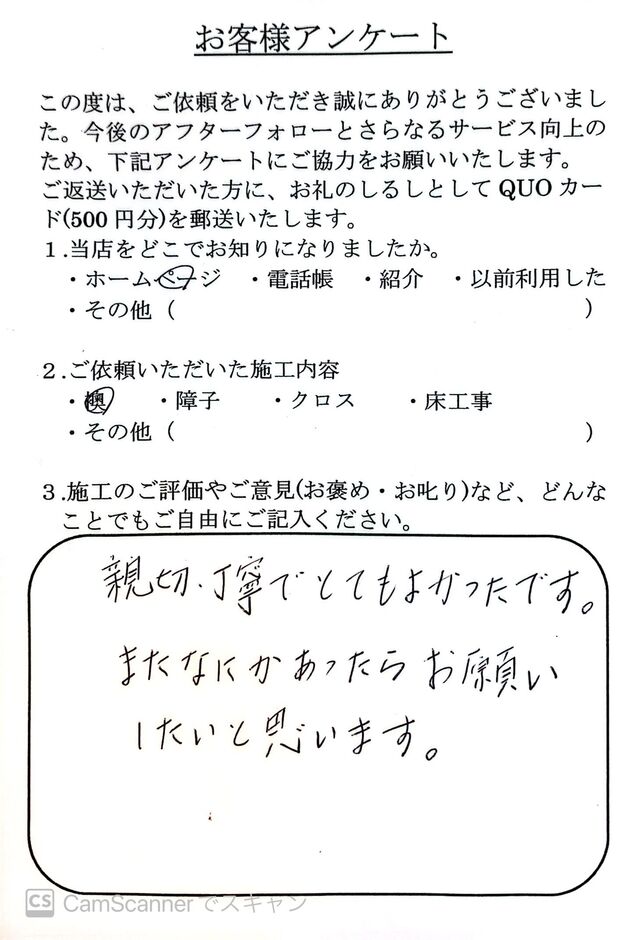 お客様アンケート
この度は、ご依頼をいただき誠にありがとうございまし
た。今後のアフターフォローとさらなるサービス向上の
ため、下記アンケートにご協力をお願いいたします。
ご返送いただいた方に、お礼のしるしとして QUO カー
ド(500 円分)を郵送いたします。
１.当店をどこでお知りになりましたか。
・ホームページ ・電話帳 ・紹介 ・以前利用した
・その他（ ）
２.ご依頼いただいた施工内容
・襖 ・障子 ・クロス ・床工事
・その他（ ）
３.施工のご評価やご意見(お褒め・お叱り)など、どんな
ことでもご自由にご記入ください。
親切、丁寧でとてもよかったです。
またなにかあったらお願い
したいと思います。
CS CamScanner でスキャン